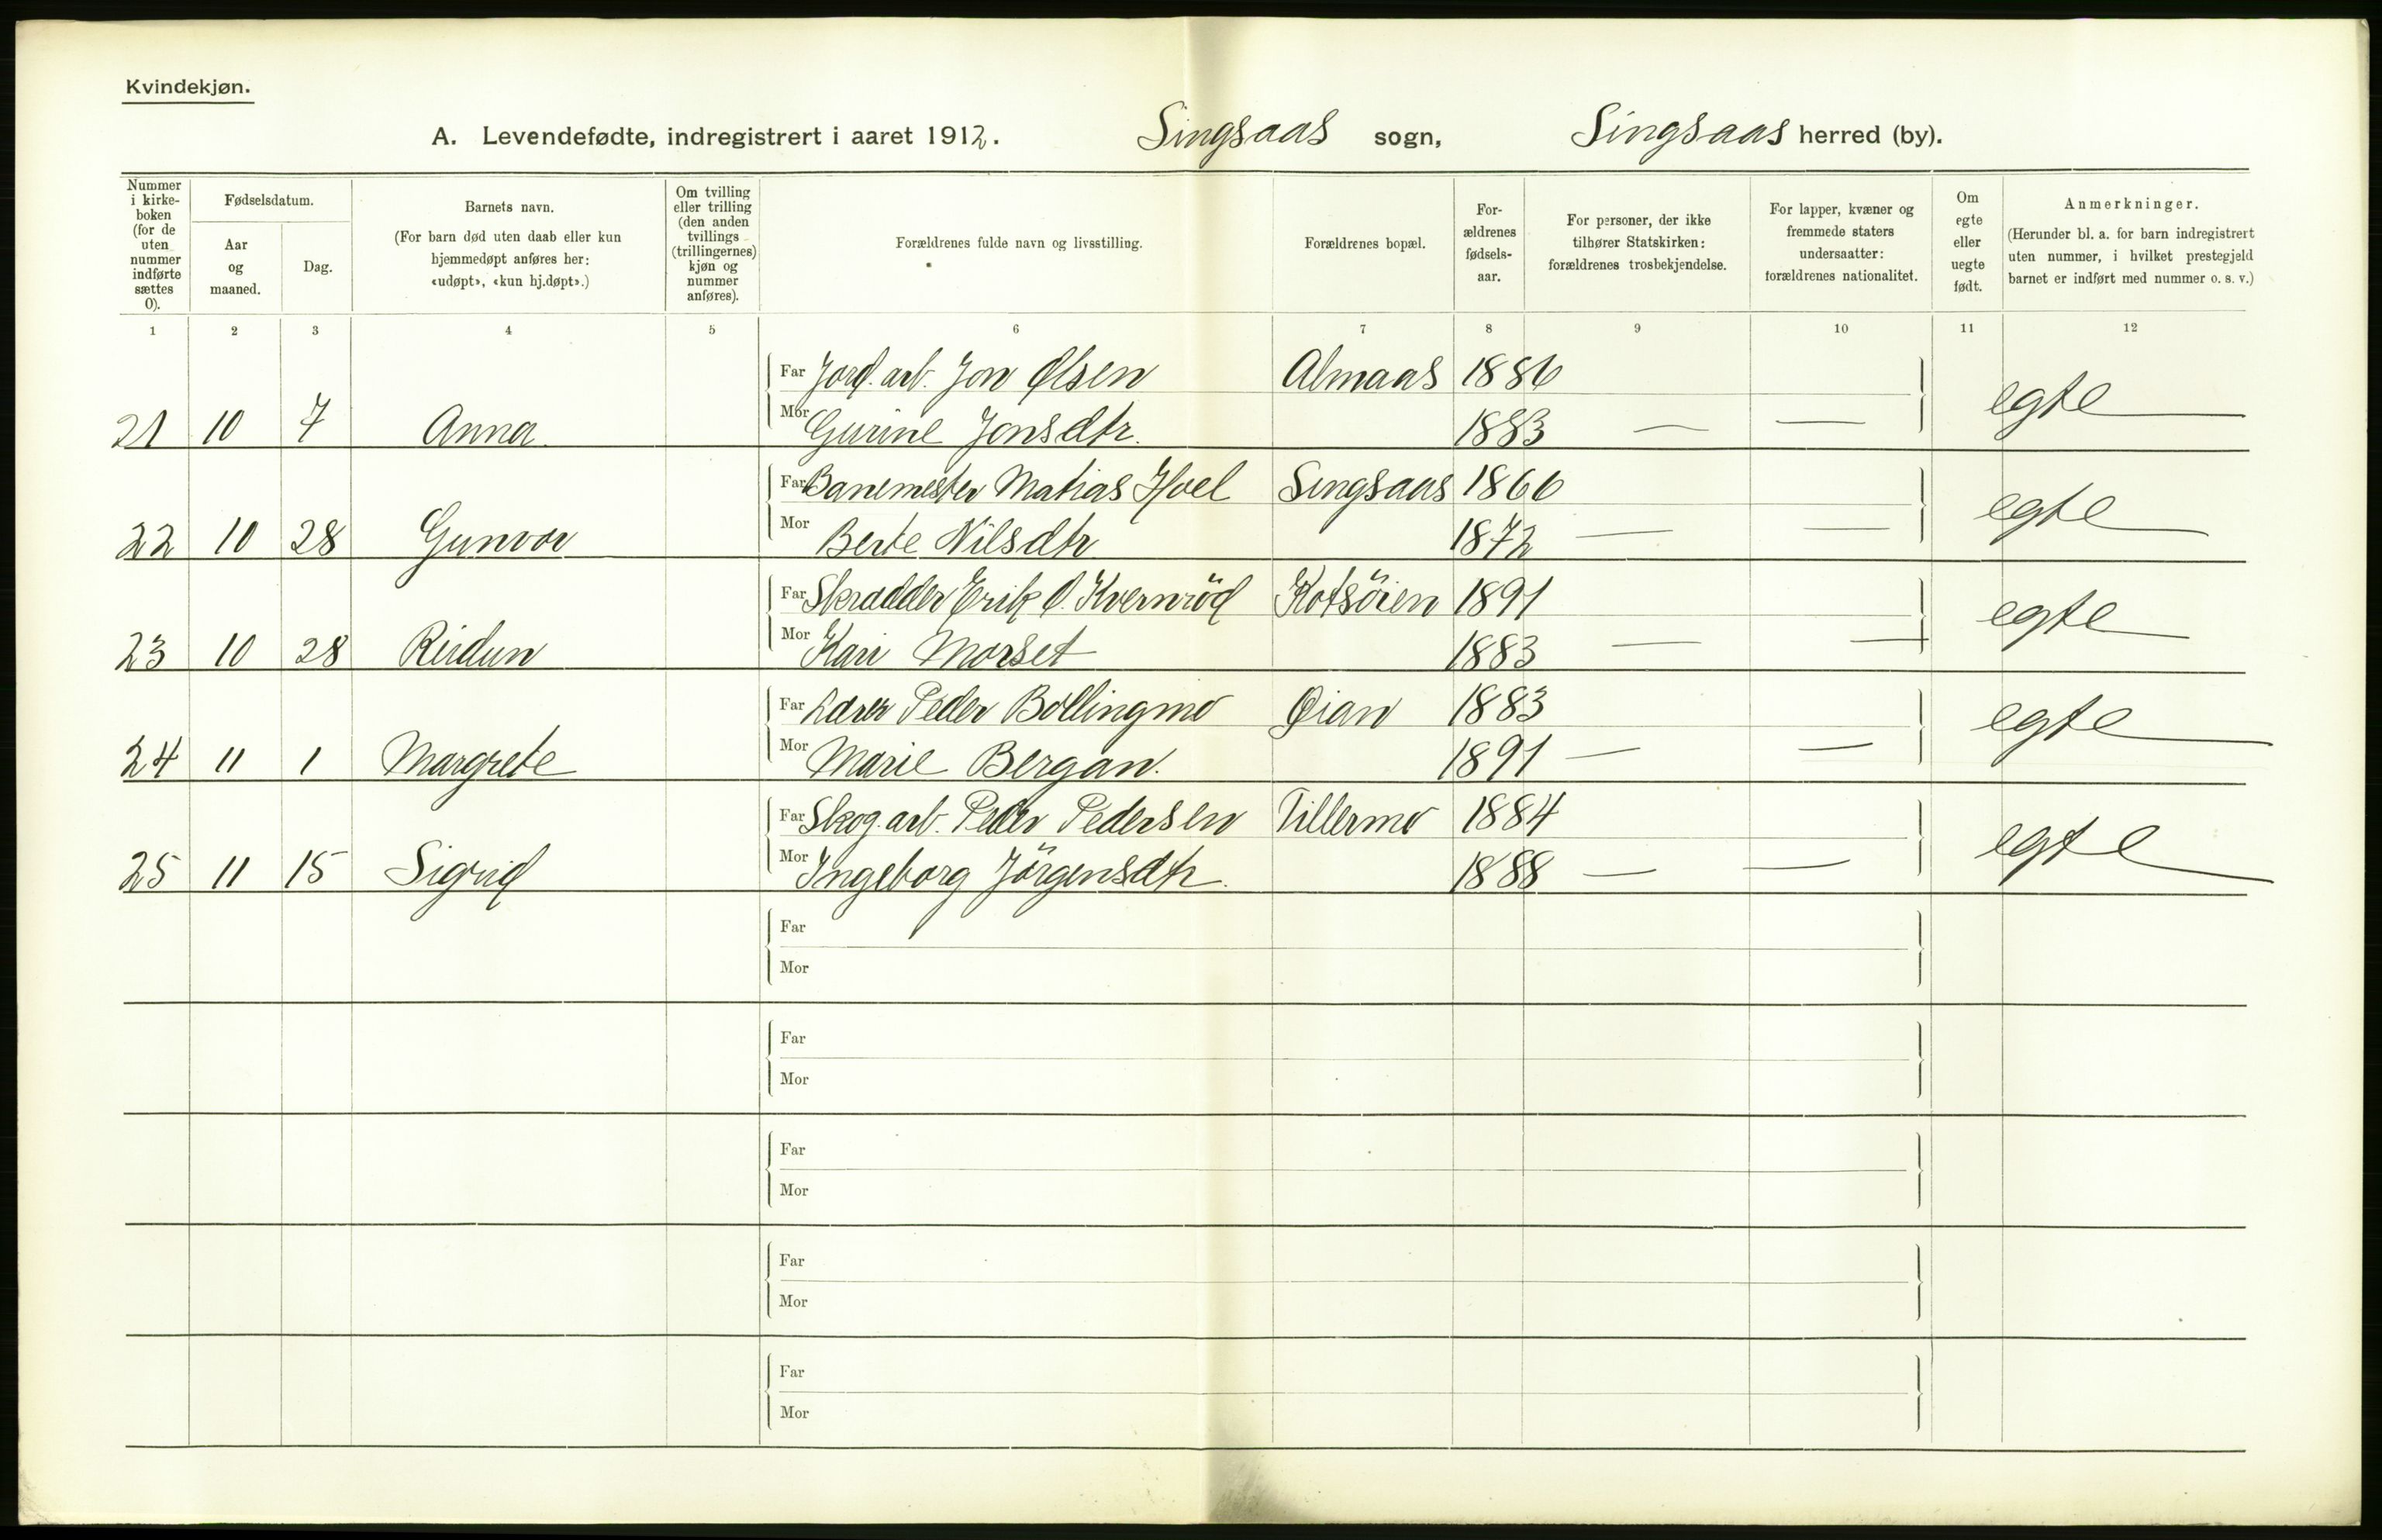 Kvindekjøn.
A. Levendefødte, indregistrert i aaret 1912. Singsaas sogn, Singsaas herred (by).
Nummer i kirke-boken (for de uten nummer indførte sættes 0).
Fødselsdatum.
Aar og maaned.
Dag.
Barnets navn.
(For barn død uten daab eller kun hjemmedøpt anføres her: «udøpt», «kun hj.døpt».)
Om tvilling eller trilling (den anden tvillings (trillingernes) kjøn og nummer anføres).
Forældrenes fulde navn og livsstilling.
Forældrenes bopæl.
For-ældrenes fødsels-aar.
For personer, der ikke tilhører Statskirken: forældrenes trosbekjendelse.
For lapper, kvæner og fremmede staters undersaatter: forældrenes nationalitet.
Om egte eller uegte født.
Anmerkninger.
(Herunder bl. a. for barn indregistrert uten nummer, i hvilket prestegjeld barnet er indført med nummer o. s. v.)
1 2 3 4 5 6 7 8 9 10 11 12
Far Jord. arb. Jon Olsen Almaas 1886
21 10 7 Anna. Mor Gurine Jonsdtr. 1883 — — egte
Far Banemester Matias Hoel Singsaas 1866
22 10 28 Gunvor Mor Berte Nilsdtr 1872 — — egte
Far Skrædder Erik O. Kvernröd Kotsöien 1891
23 10 28 Reidun Mor Kari Morset 1883 — — egte
Far Lærer Peder Bollingmo Øian 1883
24 11 1 Margrete Mor Marie Bergan. 1891 — — egte
Far Skog. arb. Peder Pedersen Tillermo 1884
25 11 15 Sigrid Mor Ingeborg Jörgensdtr. 1888 — — egte
Far
Mor
Far
Mor
Far
Mor
Far
Mor
Far
Mor